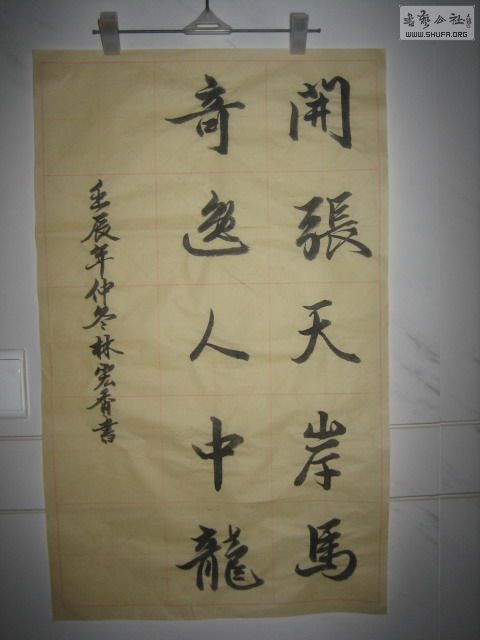 開張天岸馬
奇逸人中龍
壬辰年仲冬林宏香書
書藝公社
WWW.SHUFA.ORG